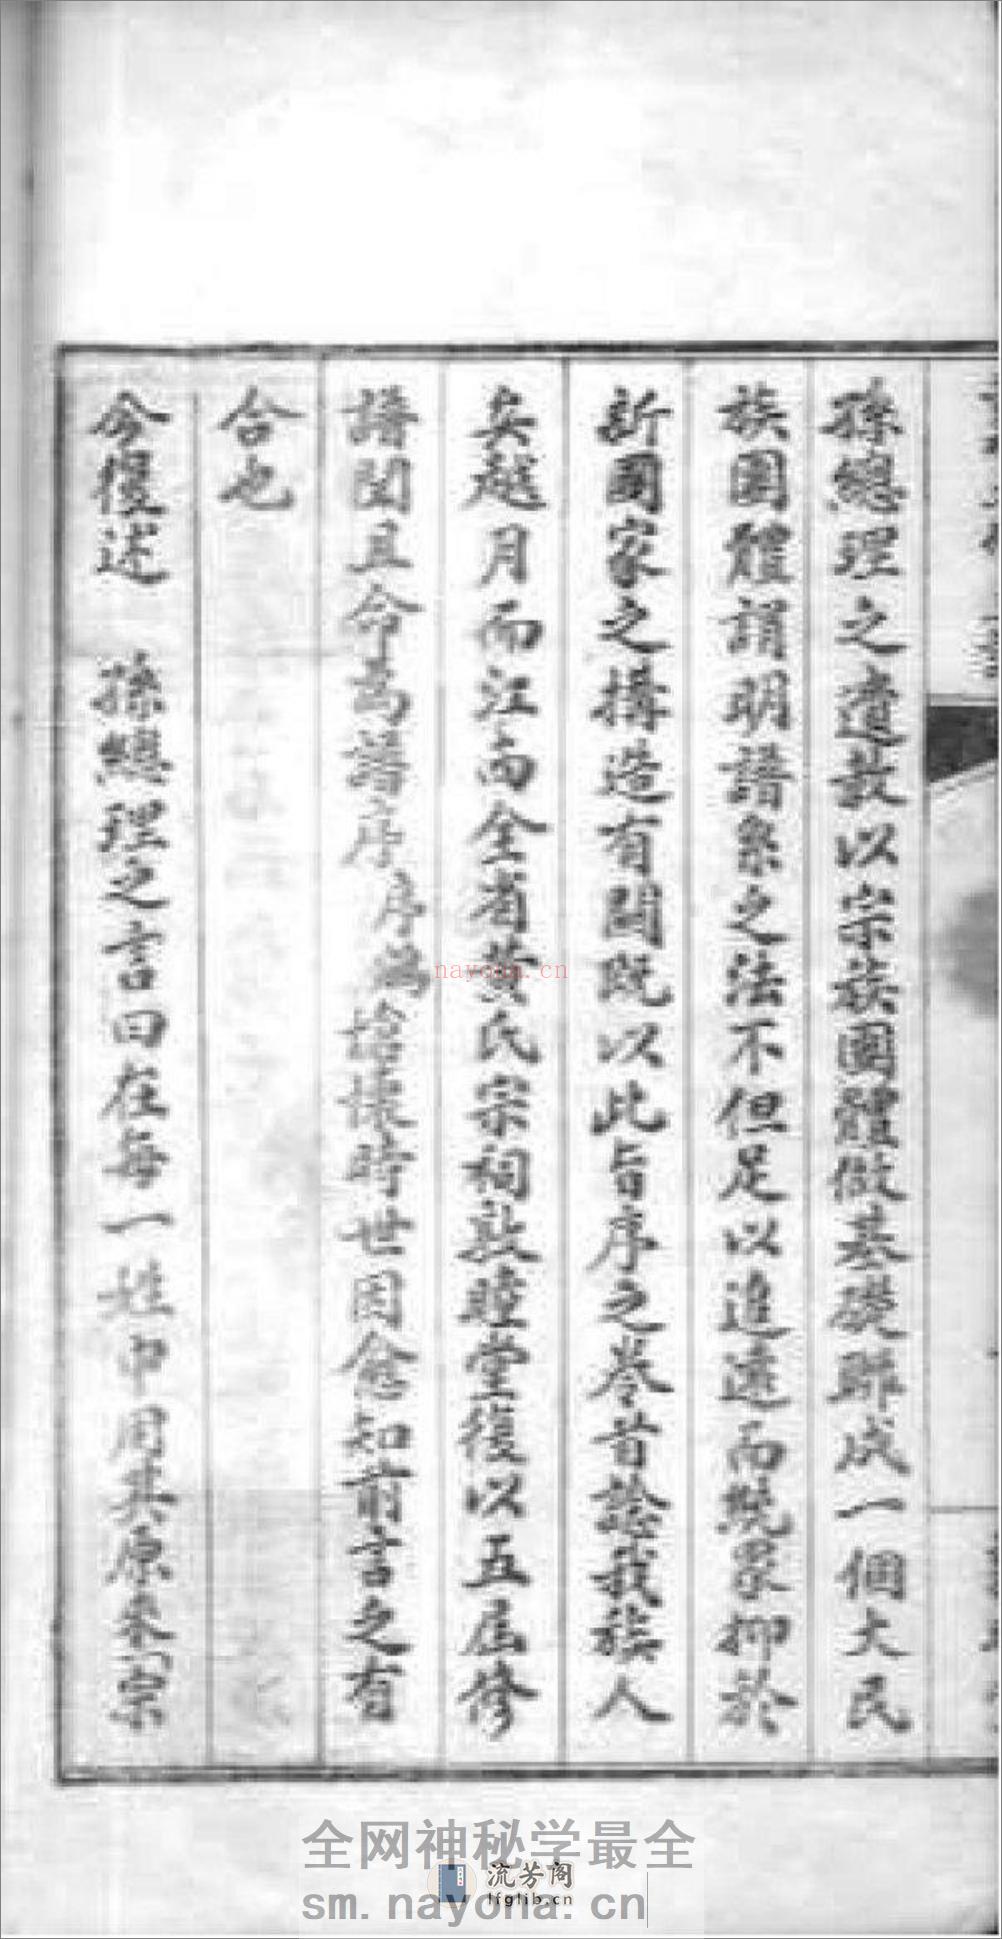 孫總理之遺教以宗族團體做基礎聯成一個大民
族團體謂明譜系之法不但足以追遠而緜眾抑於
新國家之搆造有關既以此旨序之卷首諗我族人
矣越月而江南全省黃氏宗祠敦睦堂復以五屆修
譜聞且命為譜序序為愴懷時世因愈知前言之有
合也
今復述　孫總理之言曰在每一姓中用其原來宗
nayona.cn
全网神秘学最全
流芳阁
lfglib.cn
sm.nayona.cn